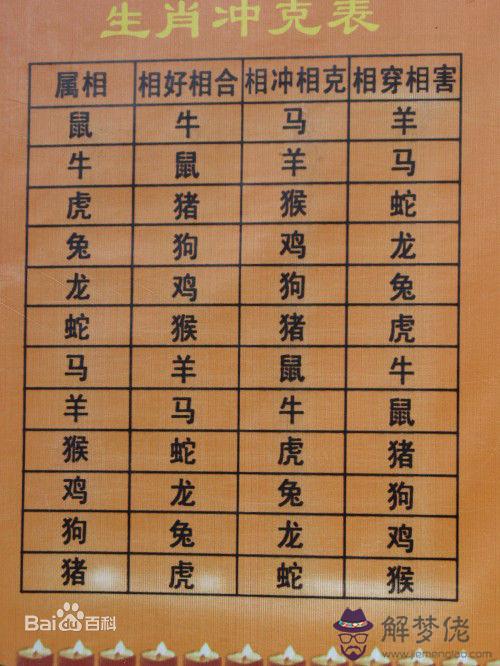 生肖冲克表
属相 相好相合 相冲相克 相穿相害
鼠 牛 马 羊
牛 鼠 羊 马
虎 猪 猴 蛇
兔 狗 鸡 龙
龙 鸡 狗 兔
蛇 猴 猪 虎
马 羊 鼠 牛
羊 马 牛 鼠
猴 蛇 虎 猪
鸡 龙 兔 狗
狗 兔 龙 鸡
猪 虎 蛇 猴
Bai 百科
解梦佬
www.jiemenglao.com